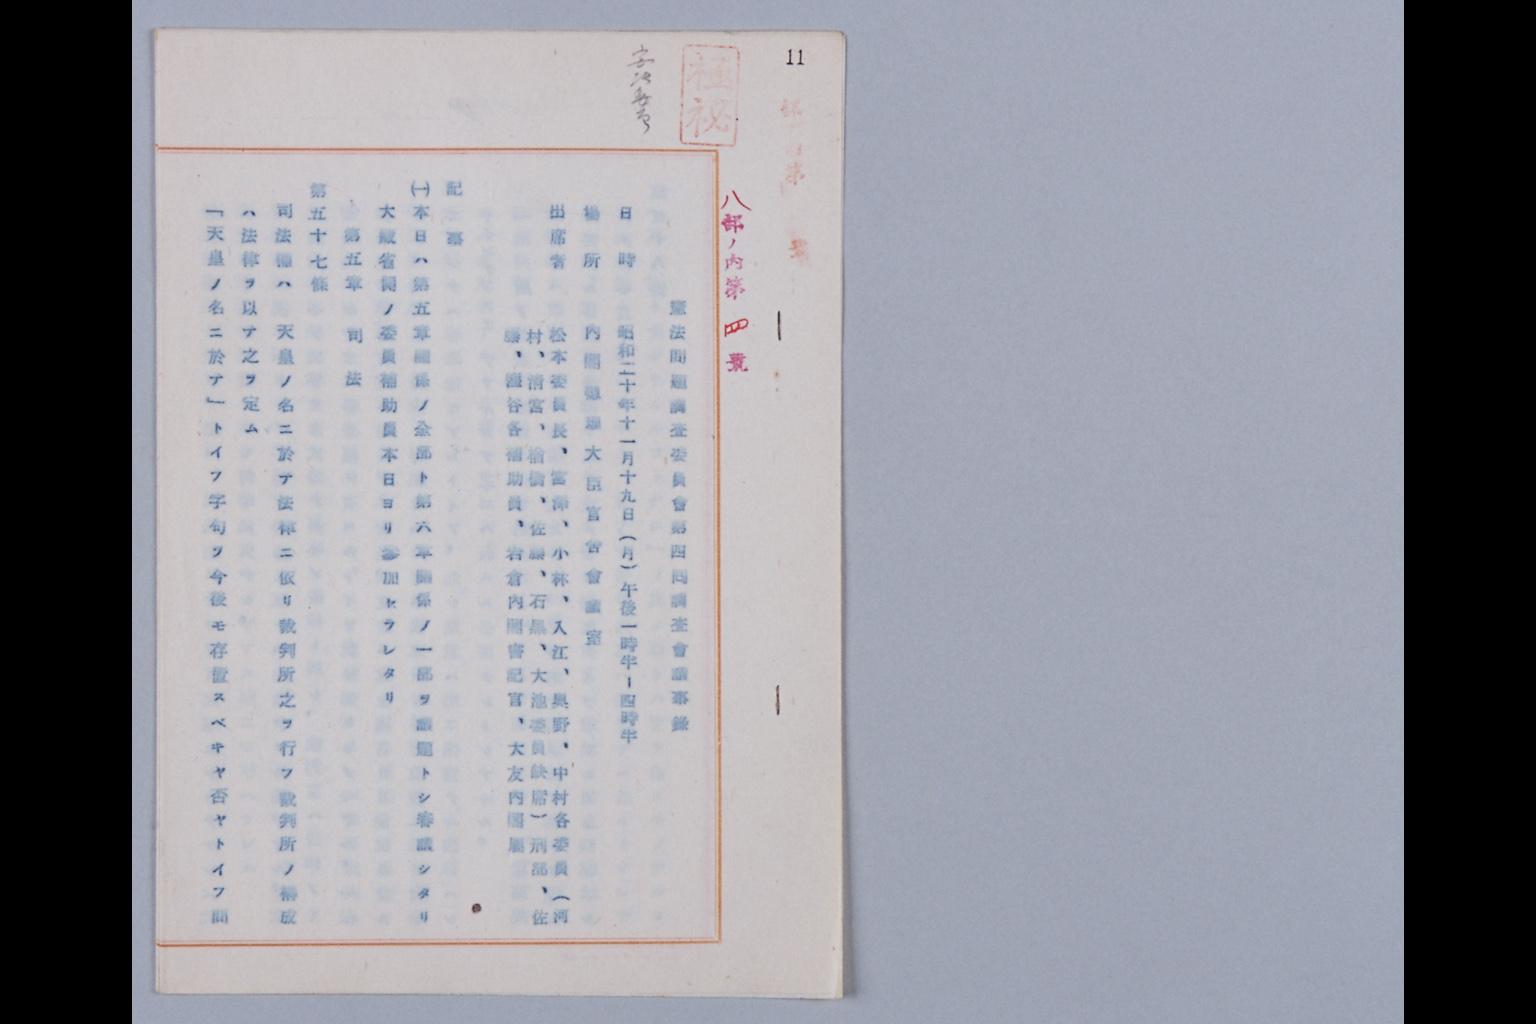 11
極秘
八部ノ内第四號
憲法問題調査委員會第四囘調査會議事錄
日時 昭和二十年十一月十九日(月)午後一時半ー四時半
場所 內閣總理大臣官舍會議室
出席者 松本委員長、宮澤、小林、入江、奧野、中村各委員(河
村、淸宮、楢橋、佐藤、石黑、大池委員缺席)刑部、佐
藤、窪谷各補助員、岩倉內閣書記官、大友內閣屬
記事
㈠本日ハ第五章關係ノ全部ト第六章關係ノ一部ヲ議題トシ審議シタリ
大藏省關ノ委員補助員本日ヨリ參加セラレタリ
第五章 司法
第五十七條
司法權ハ 天皇ノ名ニ於テ法律ニ依リ裁判所之ヲ行フ裁判所ノ構成
ハ法律ヲ以テ之ヲ定ム
「天皇ノ名ニ於テ」トイフ字句ヲ今後モ存置スベキヤ否ヤトイフ問